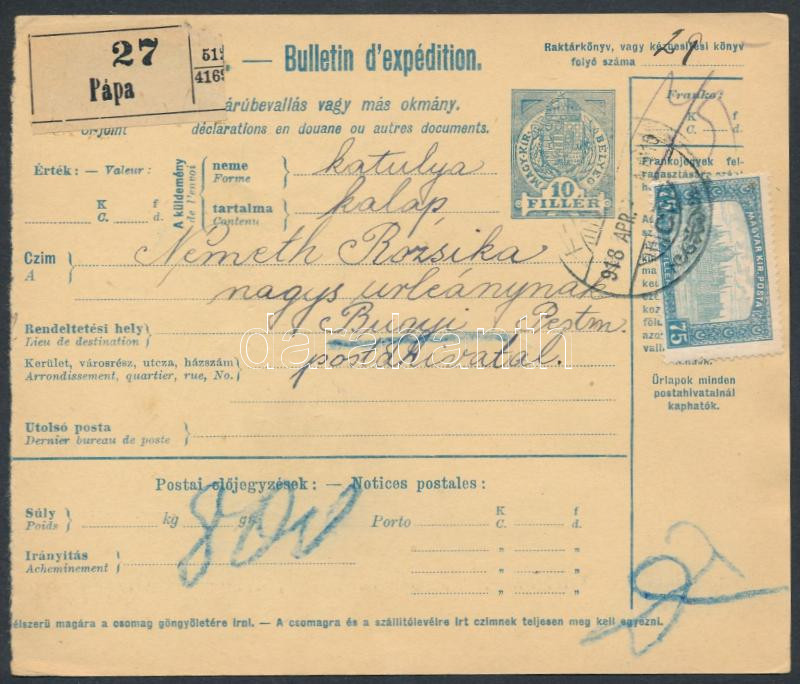 27
Pápa
51
416
— Bulletin d'expédition.
Raktárkönyv, vagy kézbesitési könyv
folyó száma 29
árúbevallás vagy más okmány.
déclarations en douane ou autres documents.
Franko:
K f
C. d.
Frankojegyek fel-
Érték: — Valeur:
K f
C. d.
A küldemény
de l'envoi
neme
Forme
katulya
tartalma
Contenu
kalap
MAGY. KIR.
BÉLYEG
10
FILLER
918 APR.
MAGYAR KIR. POSTA
75
75
Czim
A
Németh Rozsika
nagys urleánynak
Rendeltetési hely
Lieu de destination
Bugyi Pestm.
Kerület, városrész, utcza, házszám
Arrondissement, quartier, rue, No.
postahivatal.
darabanth
Űrlapok minden
postahivatalnál
kaphatók.
Utolsó posta
Dernier bureau de poste
Postai előjegyzések: — Notices postales:
Súly
Poids
kg gr.
800
Porto
K f
C. d.
Irányitás
Acheminement
élszerü magára a csomag göngyöletére irni. — A csomagra és a szállitólevélre irt czimnek teljesen meg kell egyezni.